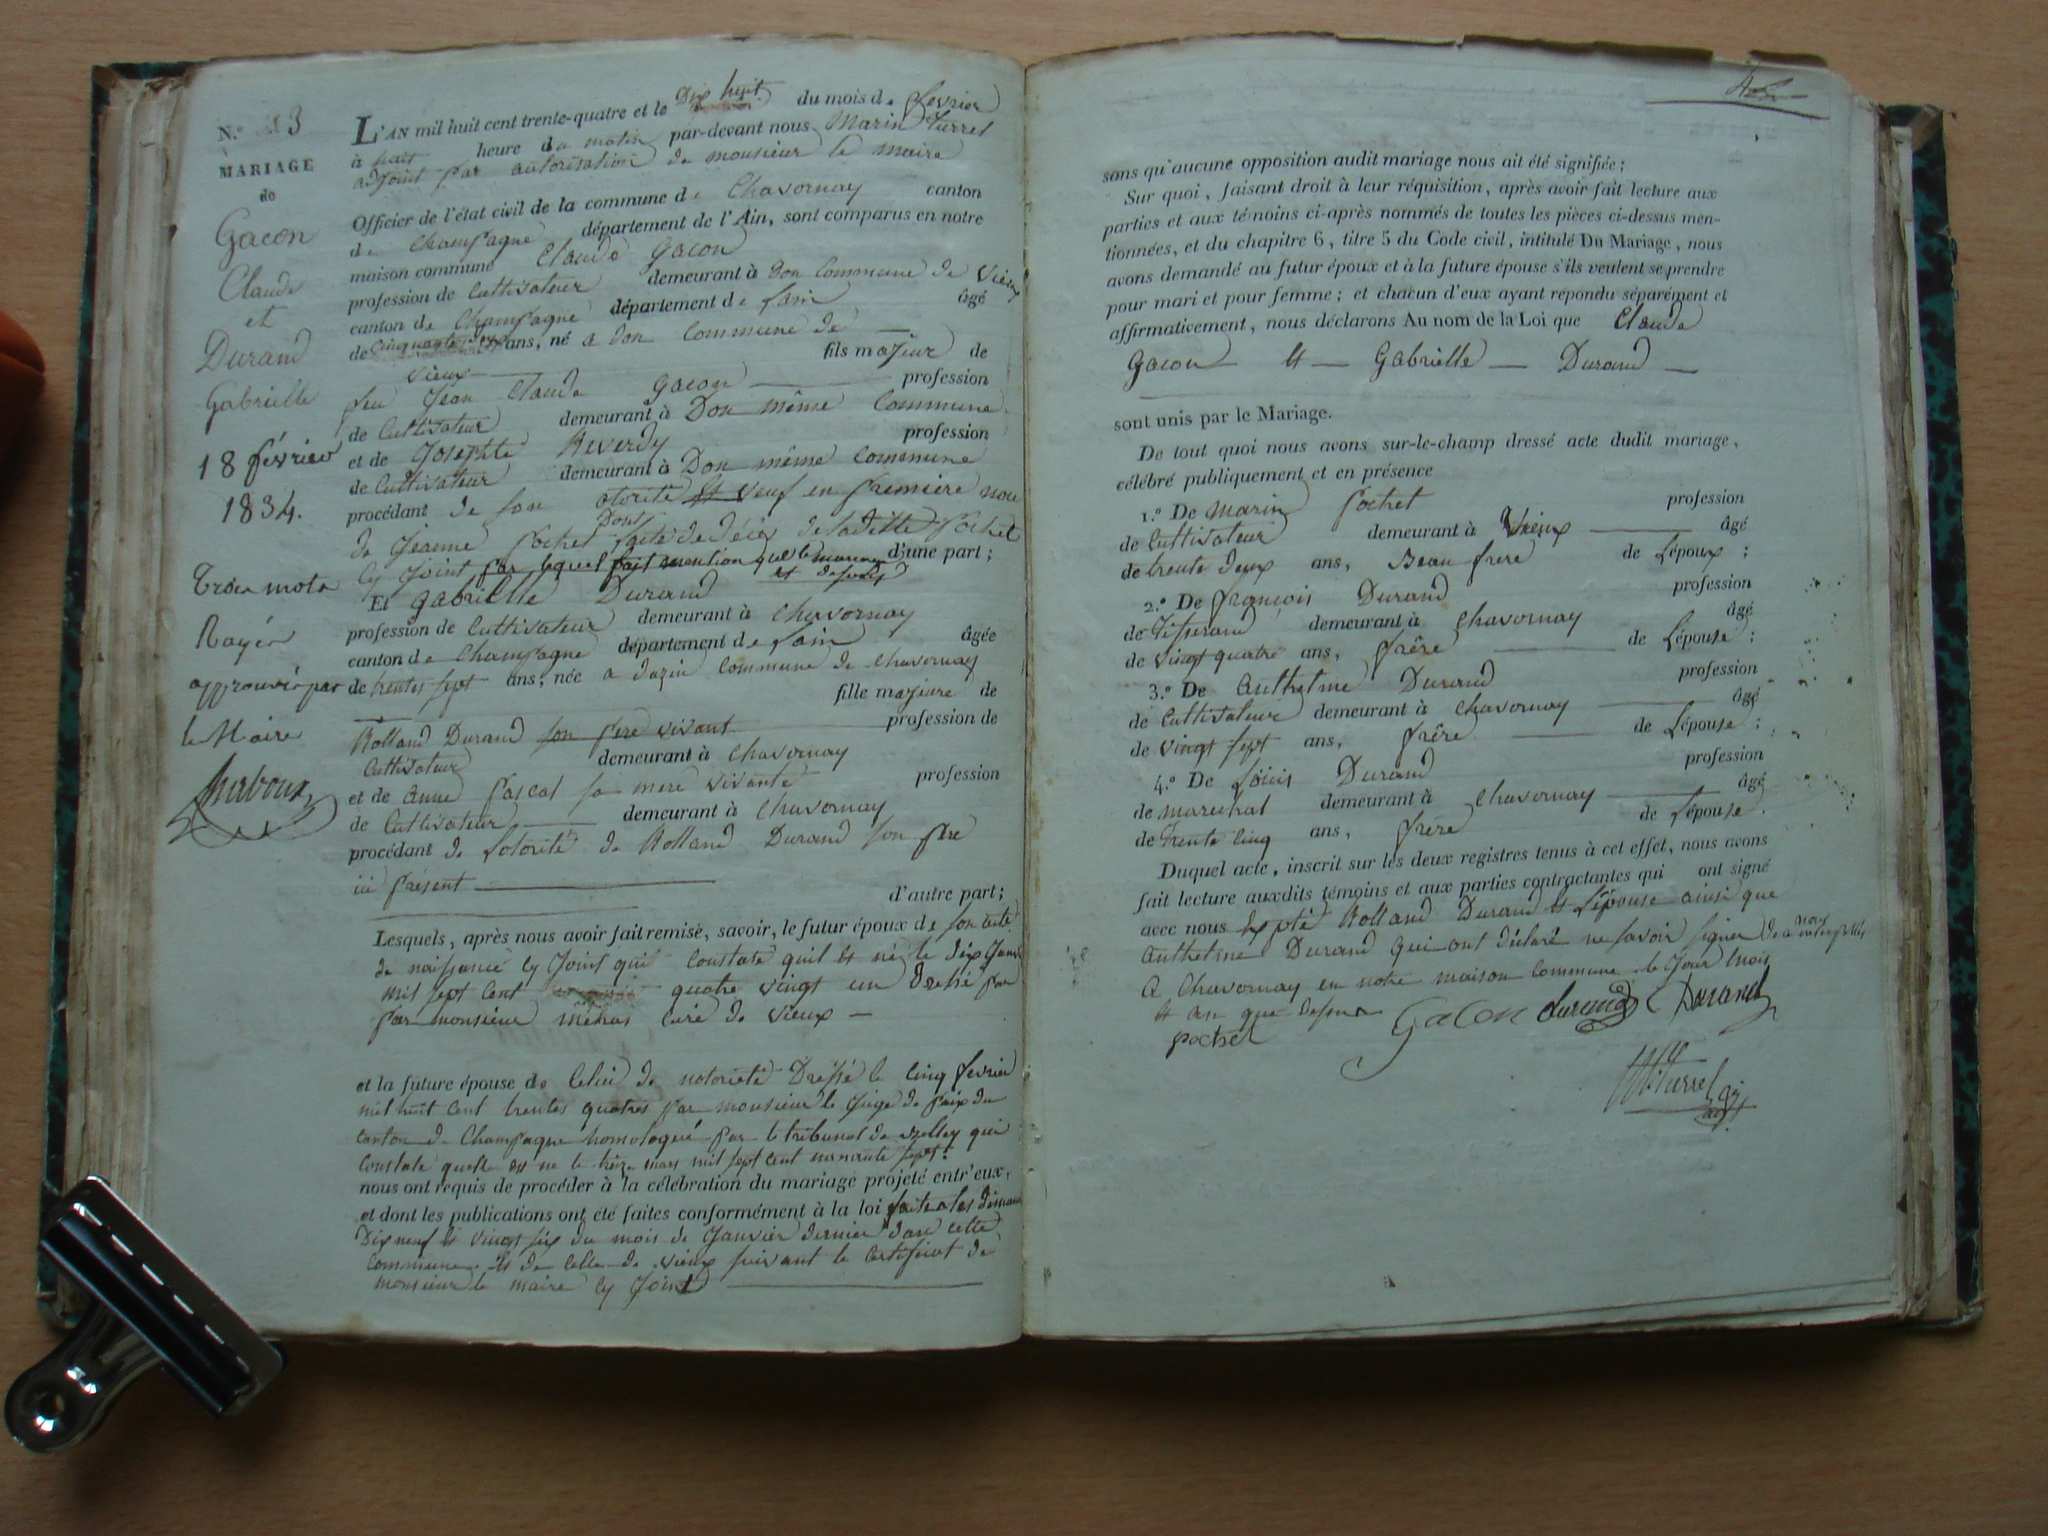 N.º 3
MARIAGE
de
Gacon
Claude
et
Durand
Gabrielle
18 février
1834.
Trois mots
Rayés
approuvé par
le Maire
L'AN mil huit cent trente-quatre et le Dix huit du mois de fevrier
à huit heure du matin par-devant nous Marin Turrel
adjoint par autorisation de monsieur le maire
Officier de l'état civil de la commune de Chavornay canton
de Champagne département de l'Ain, sont comparus en notre
maison commune Claude Gacon
profession de Cultivateur demeurant à Don Commune de Vieux
canton de Champagne département de Lain âgé
de cinquante ans, né a Don Commune de
Vieux fils majeur de
feu Jean Claude Gacon profession
de Cultivateur demeurant à Don même Commune
et de Josephte Reverdy profession
de Cultivateur demeurant à Don même Commune
procédant de son otorité et veuf en première
de Jeanne Pochet Dont décès de laditte Pochet
cy Joint par lequel fait mention que d'une part;
et
Et Gabrielle Durand
profession de Cultivateur demeurant à Chavornay
canton de Champagne département de Lain âgée
de trentes sept ans, née a dazin Commune de Chavornay
fille majeure de
Rolland Durand son père vivant profession de
Cultivateur demeurant à Chavornay
et de Anne Pascal sa mere vivante profession
de Cultivateur demeurant à Chavornay
procédant de Lotorité de Rolland Durand son père
ici présent
d'autre part;
Lesquels, après nous avoir fait remise, savoir, le futur époux de son acte
de naissance cy Joint qui Constate quil et né le dix
mil sept Cent quatre vingt un Dressé par
par monsieur Curé de Vieux
et la future épouse de Celui de notorieté Dressé le Cinq fevrier
mil huit Cent trentes quatres par monsieur le Juge de paix du
Canton de Champagne homologué par le tribunal de Belley qui
Constate quelle et ne le treize mars mil sept Cent sept
nous ont requis de procéder à la célébration du mariage projeté entr'eux,
et dont les publications ont été faites conformément à la loi faite les
Dix neuf et vingt six du mois de Janvier dernier dans cette
Commune et de Celle de Vieux suivant le Certificat de
monsieur le maire cy Joint
sons qu'aucune opposition audit mariage nous ait été signifiée;
Sur quoi, faisant droit à leur réquisition, après avoir fait lecture aux
parties et aux témoins ci-après nommés de toutes les pièces ci-dessus men-
tionnées, et du chapitre 6, titre 5 du Code civil, intitulé Du Mariage, nous
avons demandé au futur époux et à la future épouse s'ils veulent se prendre
pour mari et pour femme; et chacun d'eux ayant répondu séparément et
affirmativement, nous déclarons Au nom de la Loi que Claude
Gacon et Gabrielle Durand
sont unis par le Mariage.
De tout quoi nous avons sur-le-champ dressé acte dudit mariage,
célébré publiquement et en présence
1.º De Marin Pochet profession
de Cultivateur demeurant à Vieux âgé
de trente deux ans, Beau frere de Lépoux;
2.º De françois Durand profession
de Tisserand demeurant à Chavornay âgé
de Vingt quatre ans, frère de Lépouse;
3.º De Anthelme Durand profession
de Cultivateur demeurant à Chavornay âgé
de vingt sept ans, frère de Lépouse;
4.º De Loüis Durand profession
de marechal demeurant à Chavornay âgé
de trente Cinq ans, frère de Lépouse.
Duquel acte, inscrit sur les deux registres tenus à cet effet, nous avons
fait lecture auxdits témoins et aux parties contractantes qui ont signé
avec nous Rolland Durand et Lépouse ainsi que
Anthelme Durand qui ont déclaré ne savoir signer de
A Chavornay en notre maison Commune le Jour mois
et an que dessus
pochet Gacon durand Durand
Turrel adj